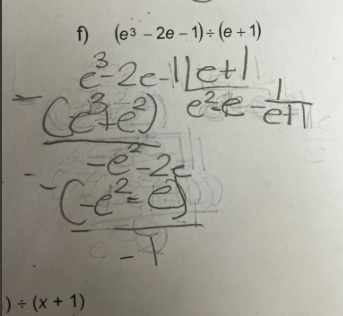 f) (e³ – 2e – 1) ÷ (e + 1)
e³-2e-1 | e+1
-(e³+e²) e²-e - 1/(e+1)
-e²-2e
-(-e²-e)
-1
) ÷ (x + 1)